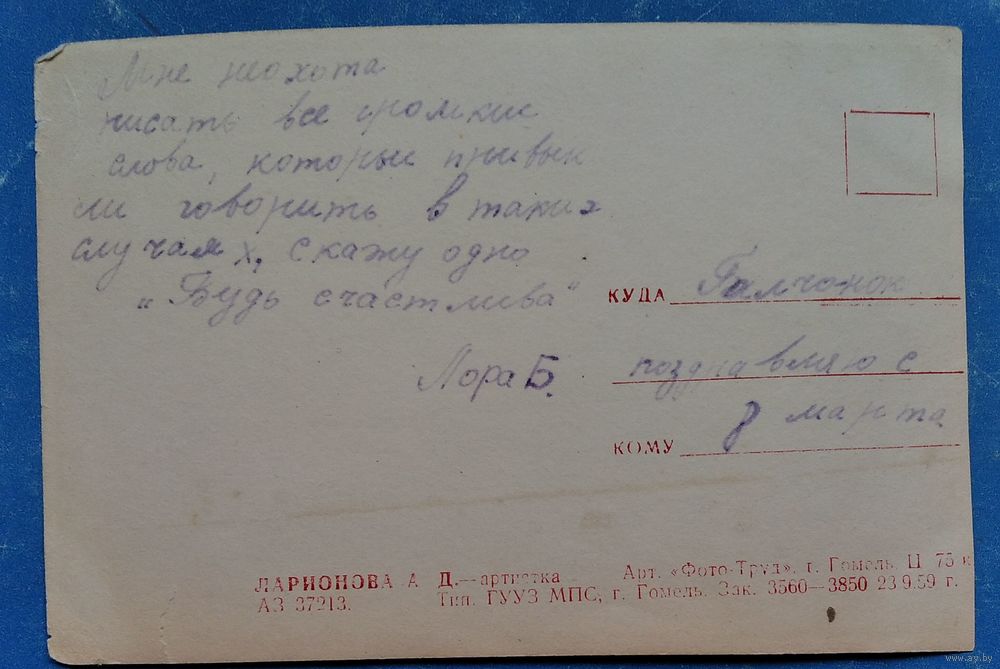 Мне неохота
писать все громкие
слова, которые привык
ли говорить в таких
случаях, скажу одно
„Будь счастлива"
Лора Б.
КУДА Галчонок
поздравляю с
8 марта
КОМУ
ЛАРИОНОВА А. Д.—артистка
АЗ 37213.
Арт. «Фото-Труд». г. Гомель. Ц 75 к
Тип. ГУУЗ МПС, г. Гомель. Зак. 3560—3850 23.9.59 г.
www.ay.by